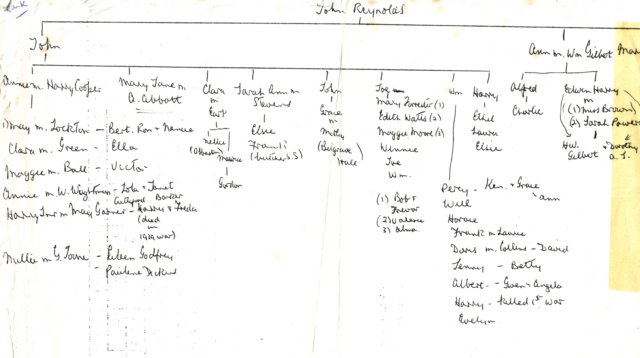 John Reynolds
John
Ann m. Wm Gilbert
Annie m. Harry Cooper
Mary Jane m.
A. Abbott
Clara
m
Earl
Sarah Ann m
Stevens
John
Grace
m
Joe
Wm
Harry
Alfred
Edwin Harry
m
(1) Miss Brown
(2) Sarah Powers
Nellie
Maurice
Gordon
Elsie
Frank
(butchers S)
(Belgrave
Hale)
(1)
Edith Watts (2)
Maggie Moore (3)
Winnie
Joe
Wm.
Ethel
Laura
Elsie
Charlie
H.W.
Gilbert
Dorothy
a. S.
Mary m. Lockton - Bert. Ron - Nancie
Clara m. Green - Ella
Maggie m. Ball - Victor
Annie m. W. - Lola & Janet
Barker
Harry Jnr m Mary Garner - Harry & Freda
(died
in
1939 war)
Millie m G. Toone - Eileen Godfrey
- Pauline Dickins
(1) Bob &
Trevor
(2) Valerie
3) Alma
Percy - Ken. & Grace
Ann
Will
Horace
Frank m Laurie
Doris m. Collins - David
Jenny - Betty
Albert - Gwen & Angela
Harry - killed 1st War
Evelyn